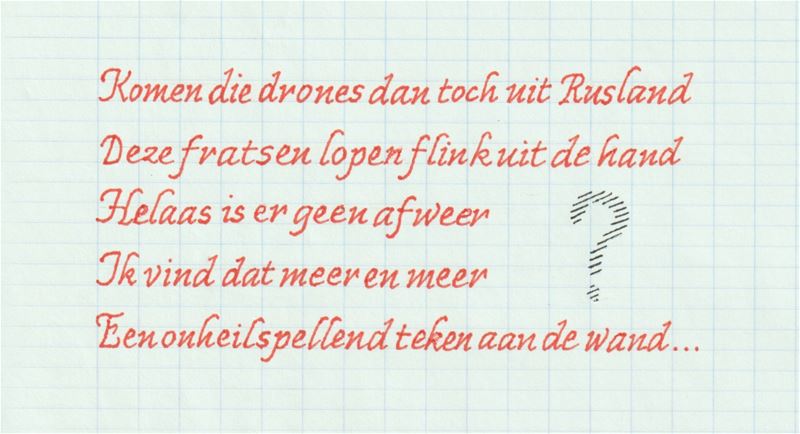 Komen die drones dan toch uit Rusland
Deze fratsen lopen flink uit de hand
Helaas is er geen afweer
?
Ik vind dat meer en meer
Een onheilspellend teken aan de wand...